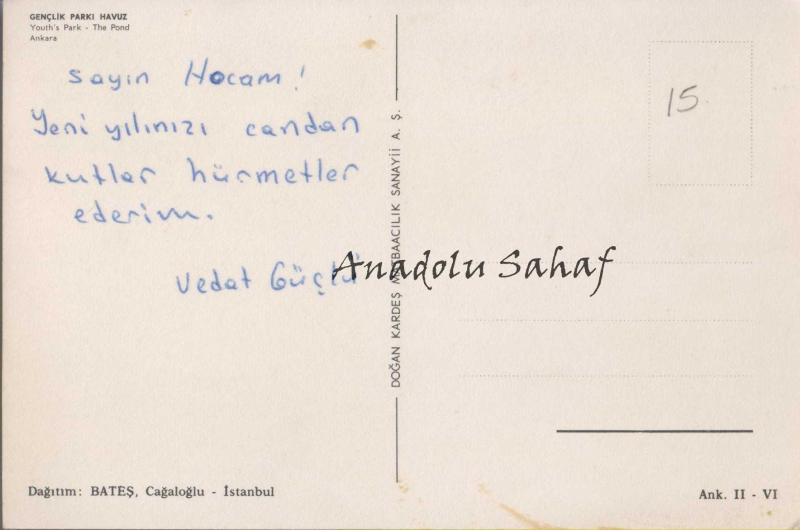 GENÇLİK PARKI HAVUZ
Youth's Park - The Pond
Ankara
Sayın Hocam!
Yeni yılınızı candan
kutlar hürmetler
ederim.
Vedat Güçlü
15
DOĞAN KARDEŞ MATBAACILIK SANAYİİ A. Ş.
Anadolu Sahaf
Dağıtım: BATEŞ, Cağaloğlu - İstanbul
Ank. II - VI